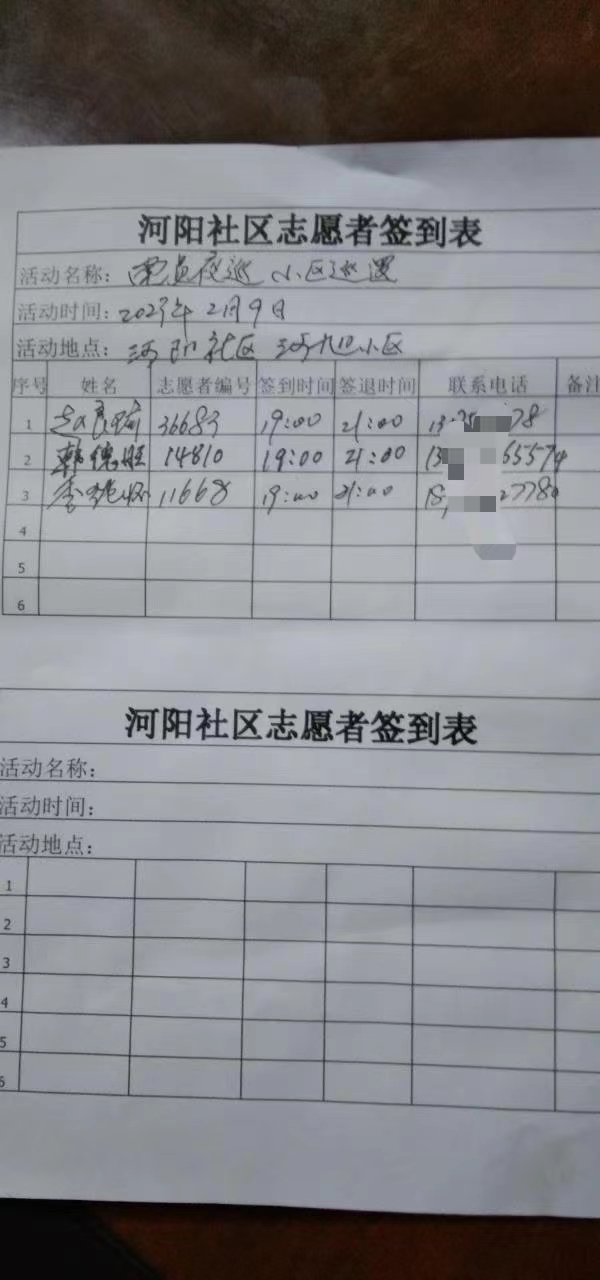 河阳社区志愿者签到表
活动名称: 党员夜巡 小区巡逻
活动时间: 2023年2月9日
活动地点: 河阳社区 小区
序号 姓名 志愿者编号 签到时间 签退时间 联系电话 备注
1 赵良 36683 19:00 21:00 78
2 韩德胜 14810 19:00 21:00 13 65574
3 李 11668 19:00 21:00 18 2778
4
5
6
河阳社区志愿者签到表
活动名称:
活动时间:
活动地点:
1
2
3
4
5
6